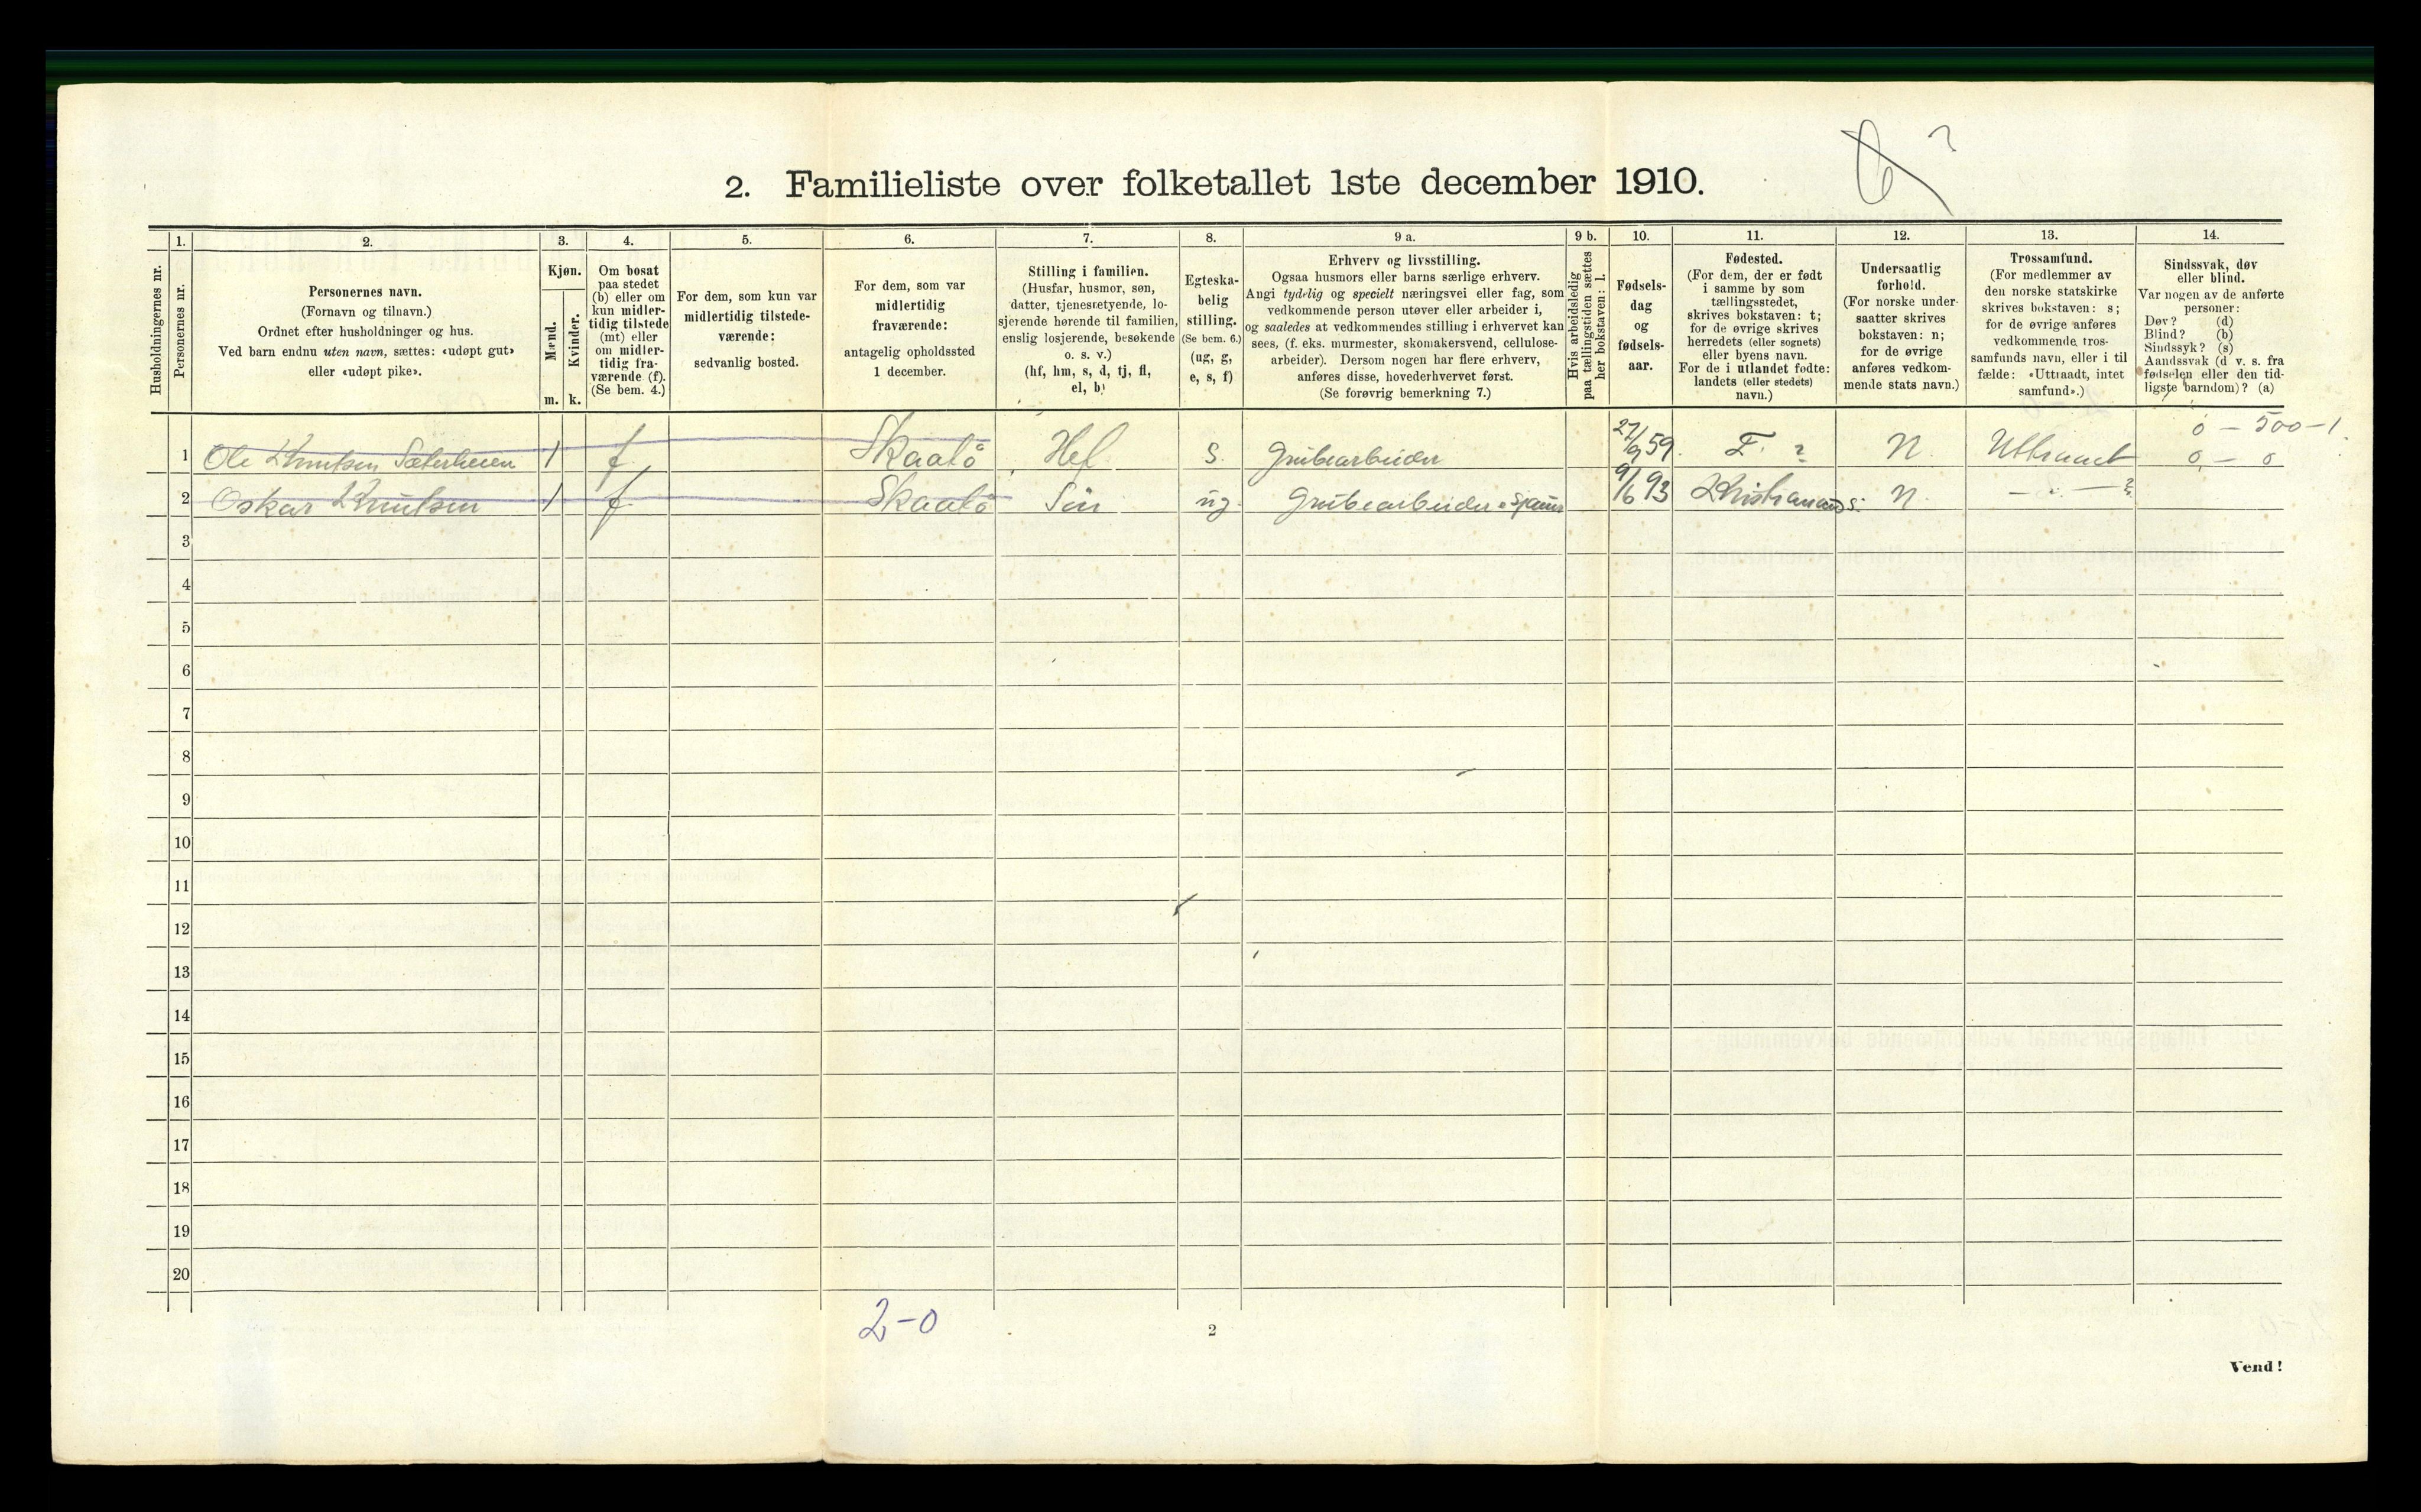 6 ?
2. Familieliste over folketallet 1ste december 1910.
Husholdningernes nr.
1.
Personernes nr.
2.
Personernes navn.
(Fornavn og tilnavn.)
Ordnet efter husholdninger og hus.
Ved barn endnu uten navn, sættes: «udøpt gut»
eller «udøpt pike».
3.
Kjøn.
Mænd.
Kvinder.
m. k.
4.
Om bosat
paa stedet
(b) eller om
kun midler-
tidig tilstede
(mt) eller
om midler-
tidig fra-
værende (f).
(Se bem. 4.)
5.
For dem, som kun var
midlertidig tilstede-
værende:
sedvanlig bosted.
6.
For dem, som var
midlertidig
fraværende:
antagelig opholdssted
1 december.
7.
Stilling i familien.
(Husfar, husmor, søn,
datter, tjenestetyende, lo-
sjerende hørende til familien,
enslig losjerende, besøkende
o. s. v.)
(hf, hm, s, d, tj, fl,
el, b)
8.
Egteska-
belig
stilling.
(Se bem. 6.)
(ug, g,
e, s, f)
9 a.
Erhverv og livsstilling.
Ogsaa husmors eller barns særlige erhverv.
Angi tydelig og specielt næringsvei eller fag, som
vedkommende person utøver eller arbeider i,
og saaledes at vedkommendes stilling i erhvervet kan
sees, (f. eks. murmester, skomakersvend, cellulose-
arbeider). Dersom nogen har flere erhverv,
anføres disse, hovederhvervet først.
(Se forøvrig bemerkning 7.)
9 b.
Hvis arbeidsledig
paa tællingstiden sættes
her bokstaven: l.
10.
Fødsels-
dag
og
fødsels-
aar.
11.
Fødested.
(For dem, der er født
i samme by som
tællingsstedet,
skrives bokstaven: t;
for de øvrige skrives
herredets (eller sognets)
eller byens navn.
For de i utlandet fødte:
landets (eller stedets)
navn.)
12.
Undersaatlig
forhold.
(For norske under-
saatter skrives
bokstaven: n;
for de øvrige
anføres vedkom-
mende stats navn.)
13.
Trossamfund.
(For medlemmer av
den norske statskirke
skrives bokstaven: s;
for de øvrige anføres
vedkommende tros-
samfunds navn, eller i til
fælde: «Uttraadt, intet
samfund».)
14.
Sindssvak, døv
eller blind.
Var nogen av de anførte
personer:
Døv? (d)
Blind? (b)
Sindssyk? (s)
Aandssvak (d. v. s. fra
fødselen eller den tid-
ligste barndom)? (a)
1 Ole Knutsen Sæterheien 1 f Skaatö Hf. S. Grubearbeider 27/9 59. F. ? N Uttraadt 0 - 500-1.
0 - 0
2 Oskar Knutsen 1 f Skaatö Sön ug Grubearbeider 9/6 93 Kristiansands. N — " — ?
3
4
5
6
7
8
9
10
11
12
13
14
15
16
17
18
19
20
2-0
2
Vend!